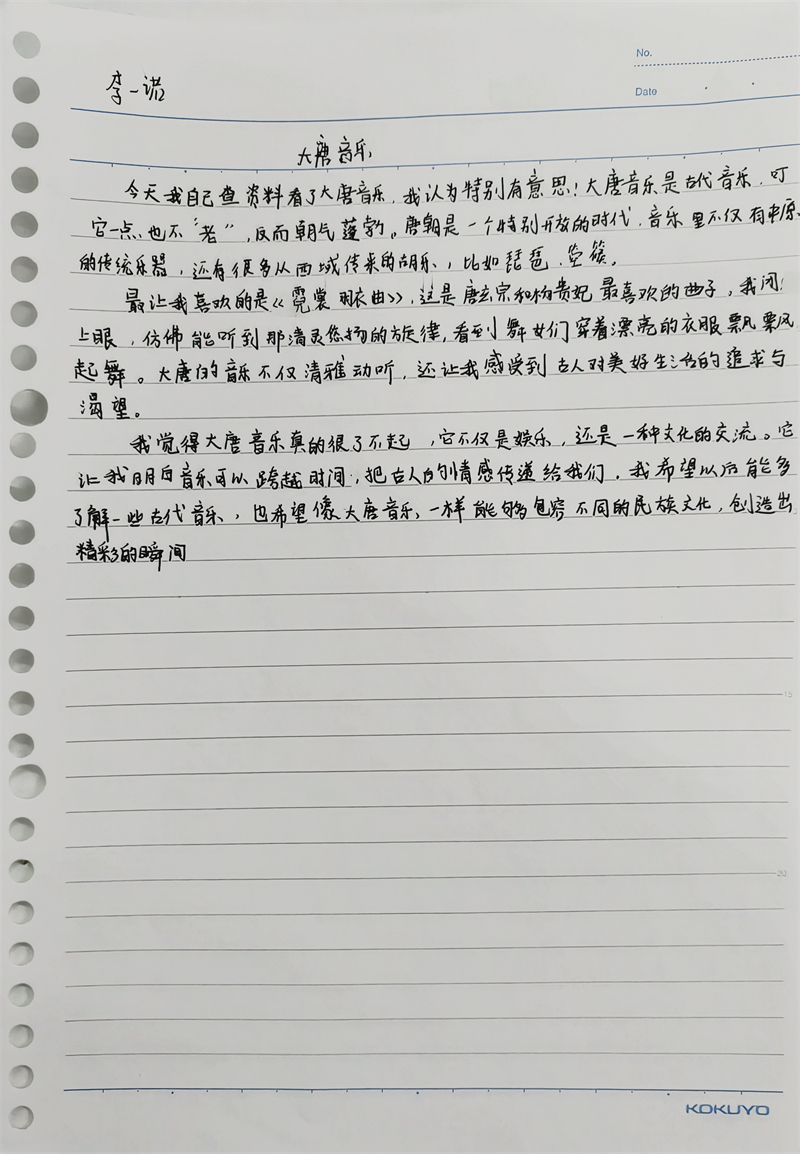 No.
Date
李一诺
大唐音乐
今天我自己查资料看了大唐音乐,我认为特别有意思!大唐音乐是古代音乐,可
它一点也不“老”,反而朝气蓬勃。唐朝是一个特别开放的时代,音乐里不仅有中原
的传统乐器,还有很多从西域传来的胡乐,比如琵琶、箜篌。
最让我喜欢的是《霓裳羽衣曲》,这是唐玄宗和杨贵妃最喜欢的曲子,我闭
上眼,仿佛能听到那清灵悠扬的旋律,看到舞女们穿着漂亮的衣服飘飘
起舞。大唐的音乐不仅清雅动听,还让我感受到古人对美好生活的追求与
渴望。
我觉得大唐音乐真的很了不起,它不仅是娱乐,还是一种文化的交流。它
让我明白音乐可以跨越时间,把古人的情感传递给我们,我希望以后能多
了解一些古代音乐,也希望像大唐音乐一样能够包容不同的民族文化,创造出
精彩的瞬间
15
20
KOKUYO